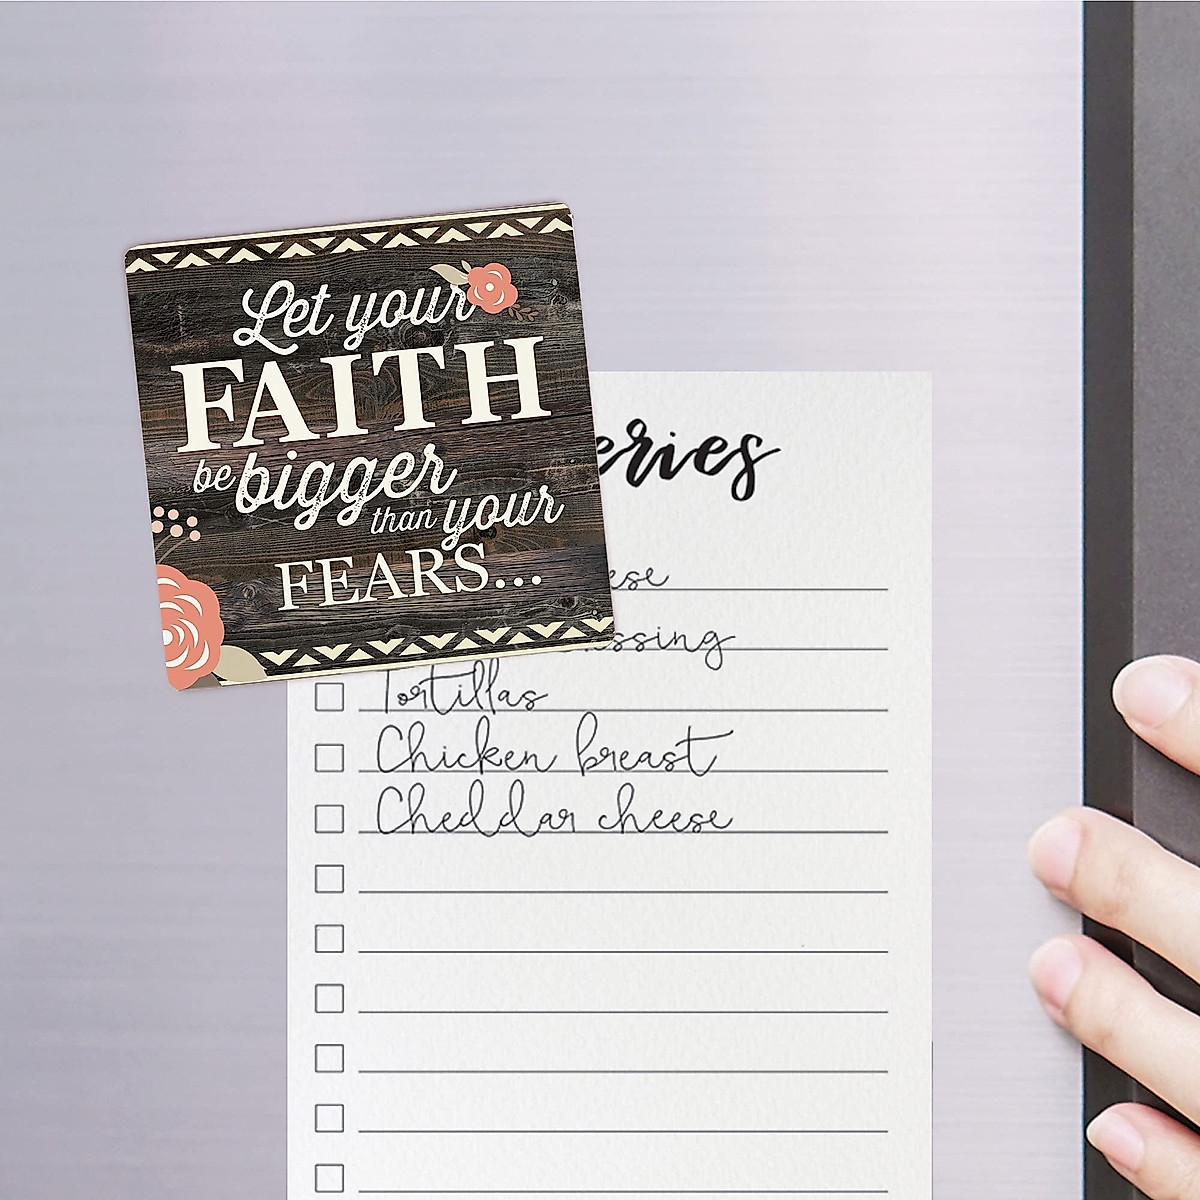 Let your
FAITH
be bigger
than your
FEARS...
Tortillas
Chicken breast
Cheddar cheese